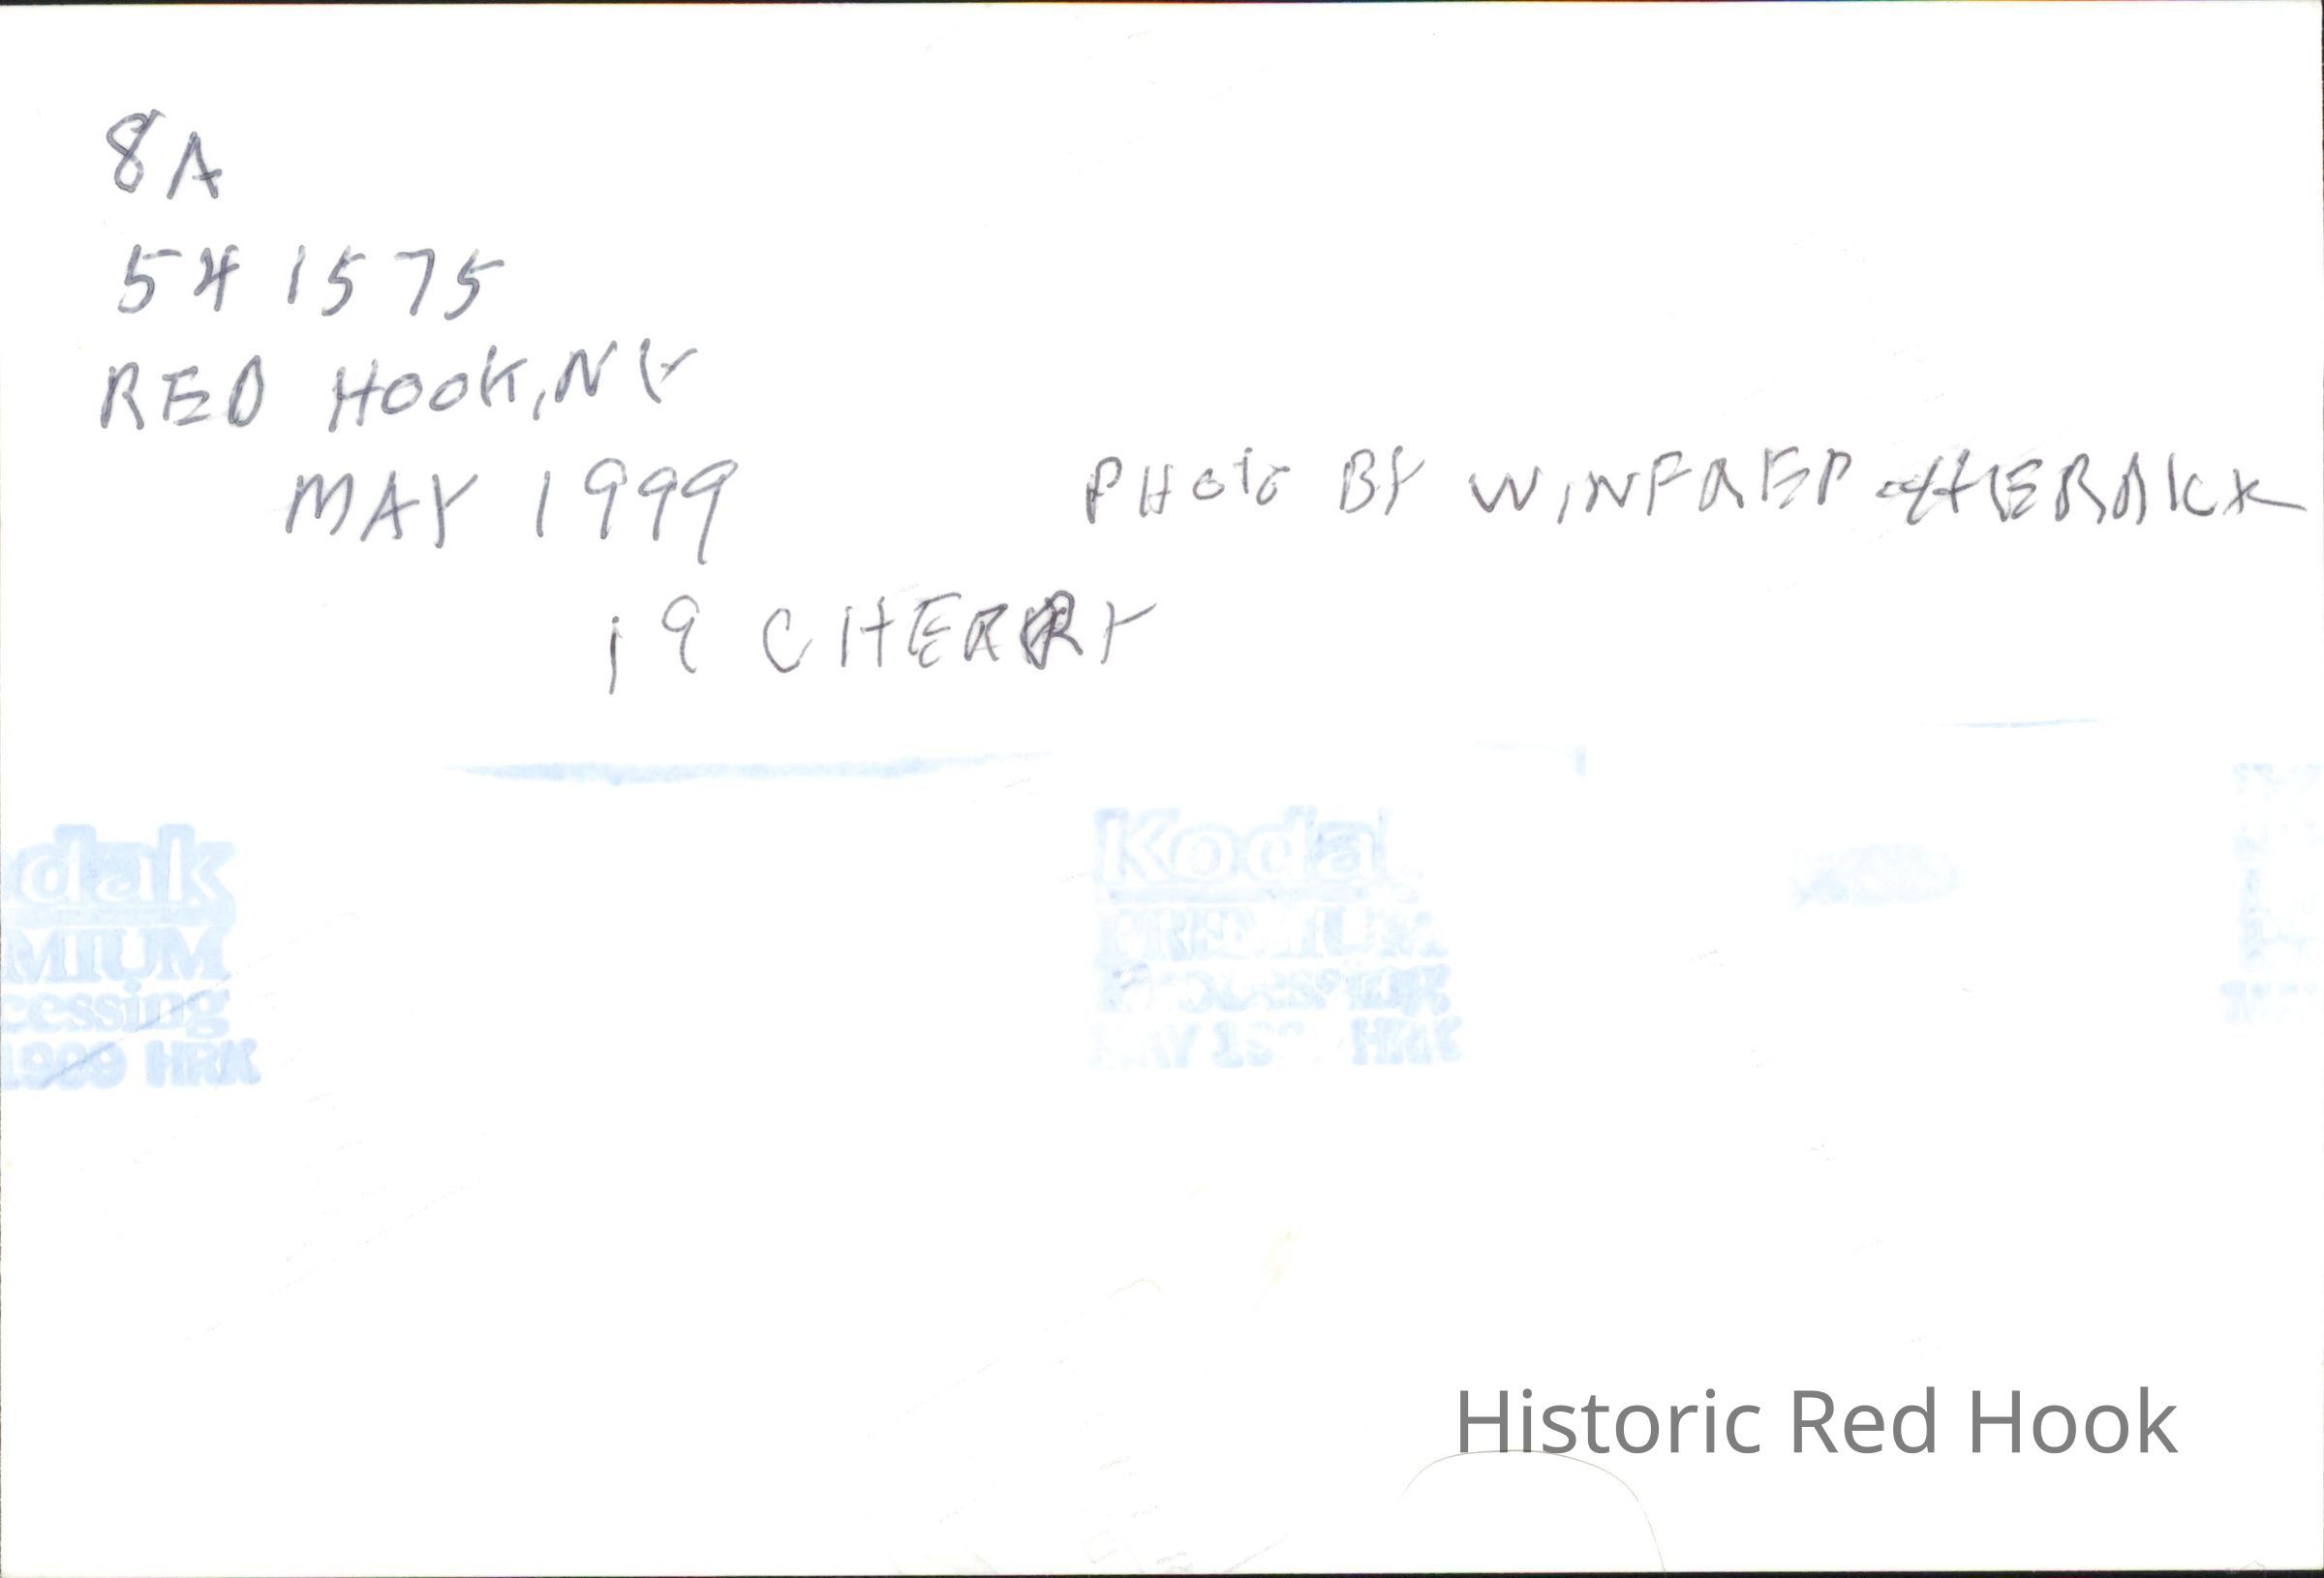 8A
54 1575
RED HOOK, NY
MAY 1999
PHOTO BY WINFRED
19 CHERRY
dak
MIUM
cessing
1999 HRK
Koda
PREMIUM
Processing
MAY 19 HRK
Historic Red Hook